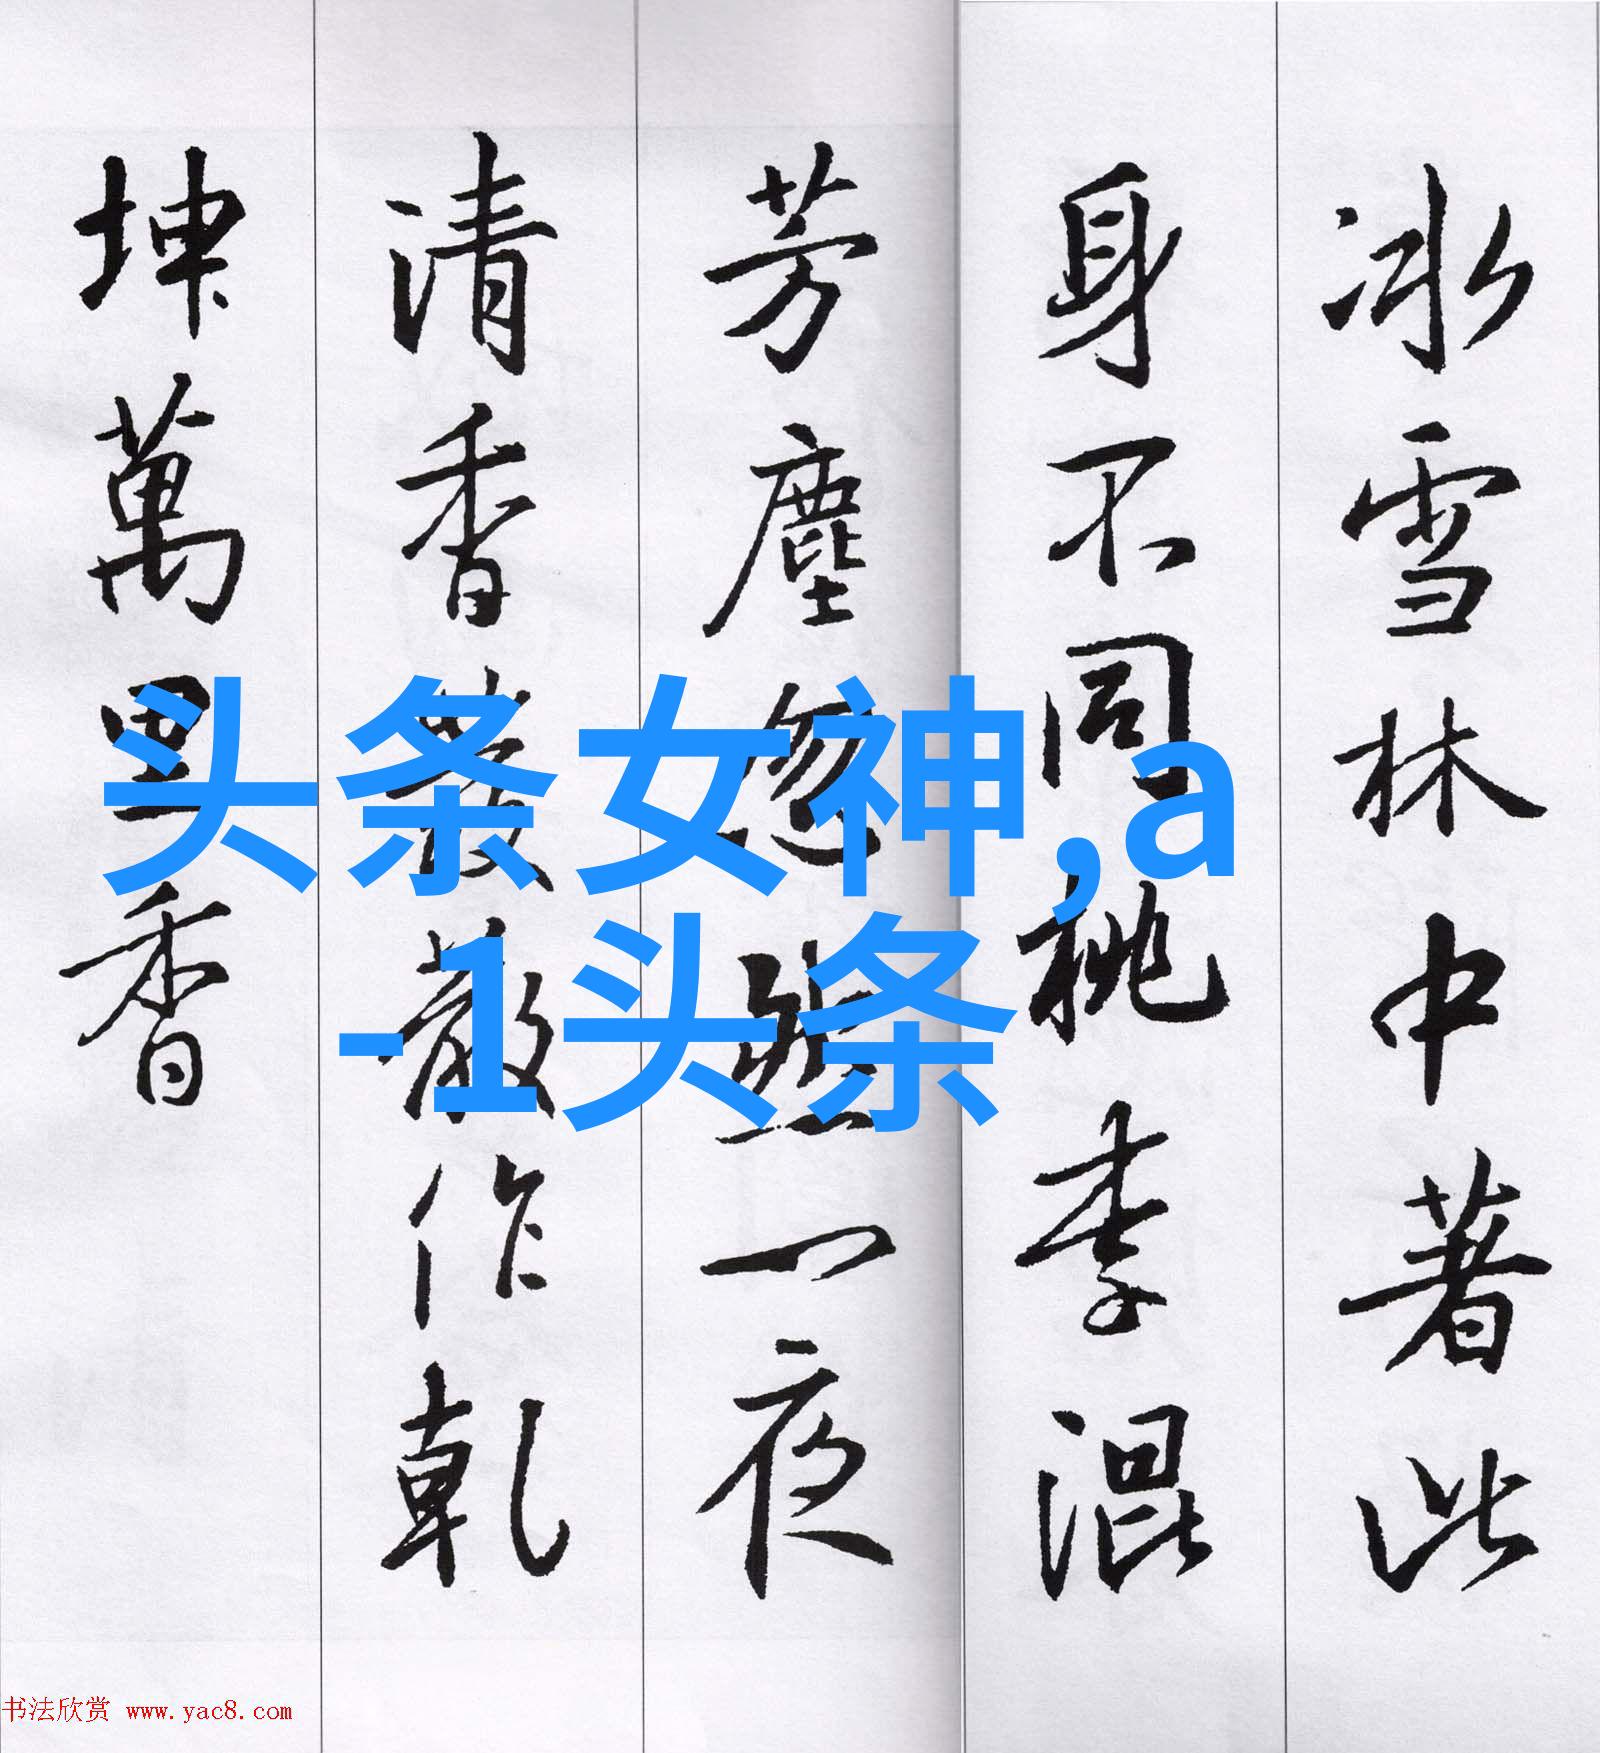 冰雪林中著此
身不同桃李混
芳塵忽然一夜
清香發散作乾
坤萬里香
头条女神,a
-1头条
书法欣赏 www.yac8.com